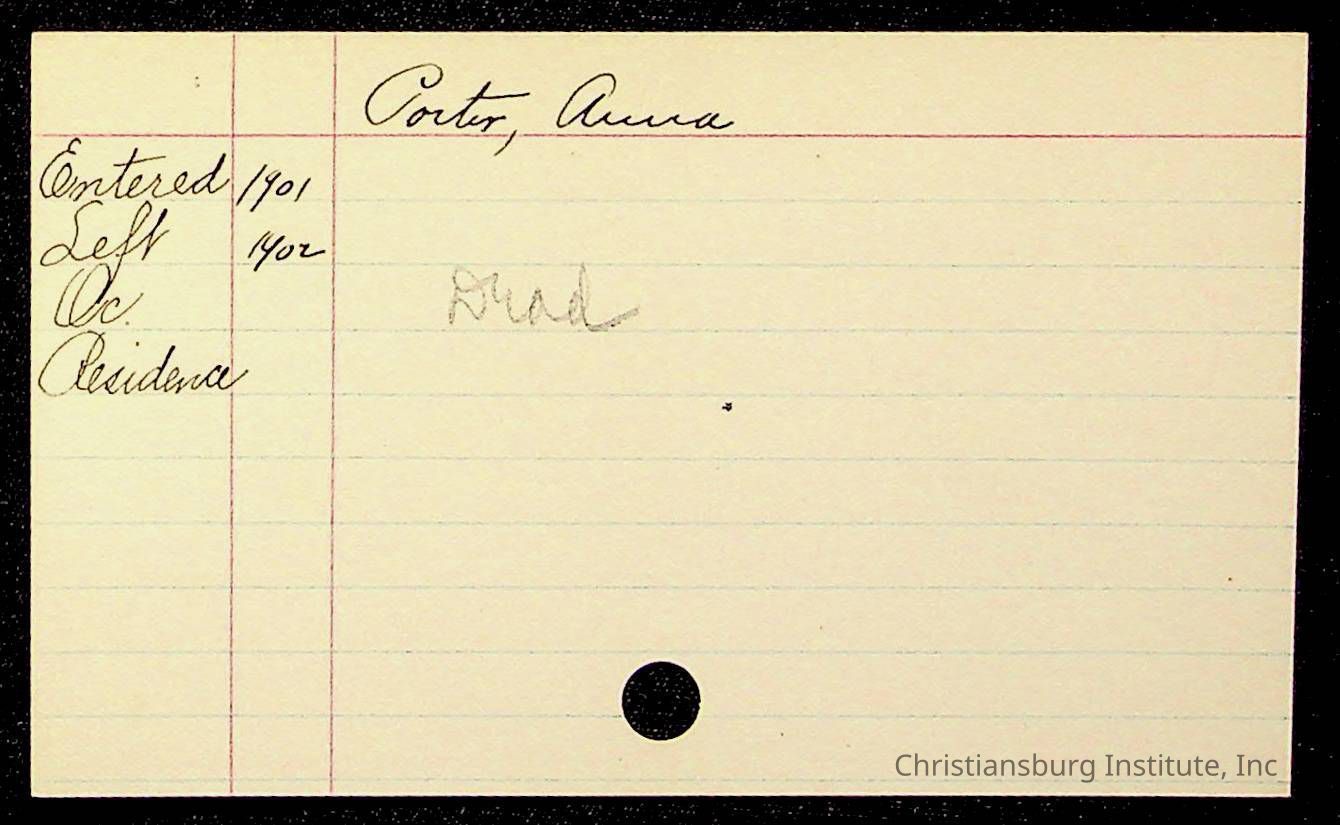 Porter, Anna
Entered 1901
Left 1902
Oc.
Dead
Residence
Christiansburg Institute, Inc